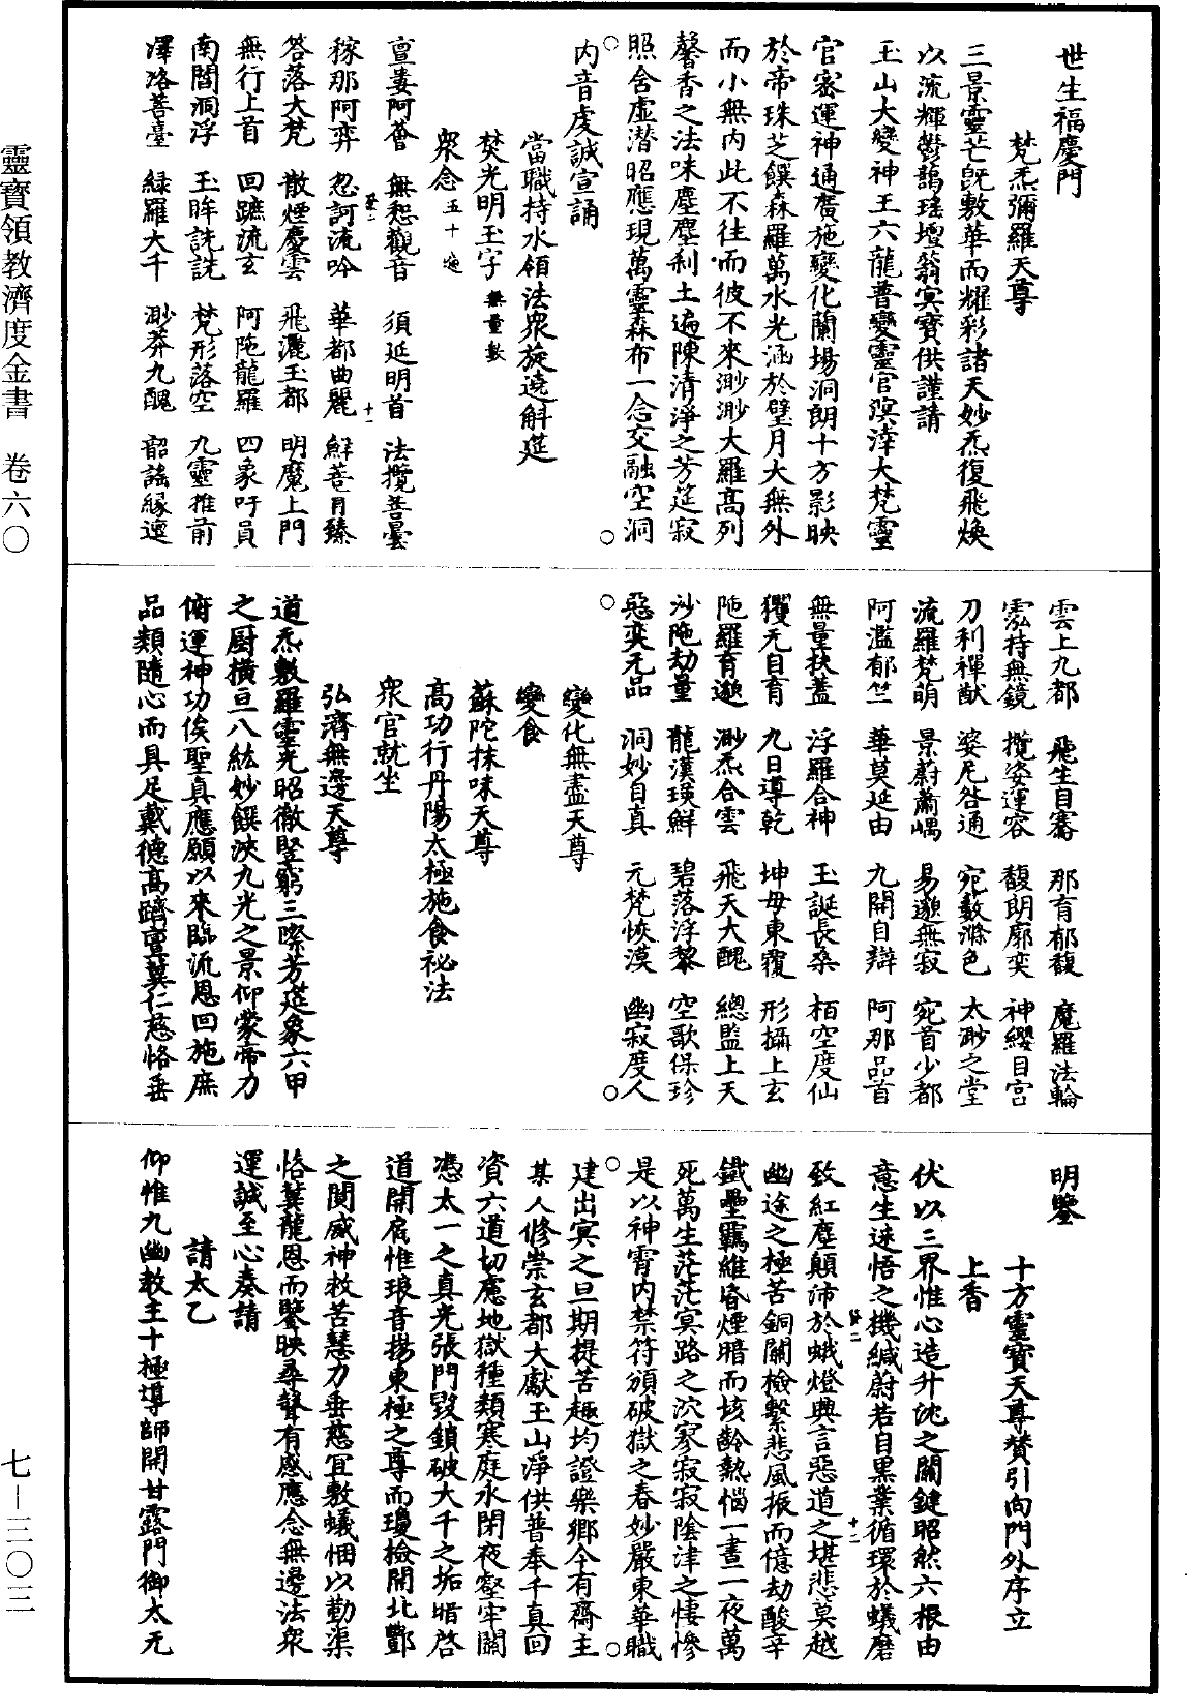 世生福慶門
梵炁彌羅天尊
三景靈芒旣敷華而耀彩諸天妙炁復飛煥
以流輝鬱藹瑤壇蓊冥寶供謹請
玉山大變神王六龍普變靈官溟涬大梵靈
官密運神通廣施變化蘭場洞朗十方影映
於帝珠芝饌森羅萬水光涵於璧月大無外
而小無內此不往而彼不來渺渺大羅高列
馨香之法味塵塵刹土遍陳清淨之芳筵寂
照含虛潛昭應現萬靈森布一合交融空洞
内音虔誠宣誦
當職持水領法衆旋遶斛筵
焚光明玉字無量數
衆念五十遍
亶婁阿薈 無惒觀音 須延明首 法攬菩曇
稼那阿弈 忽訶流吟 華都曲麗 鮮菩育臻
答落大梵 散煙慶雲 飛灑玉都 明魔上門
無行上首 回蹠流玄 阿陁龍羅 四象吁員
南閻洞浮 玉眸詵詵 梵形落空 九靈推前
澤洛菩臺 緑羅大千 渺莽九醜 韶謠緣邅
雲上九都 飛生自騫 那育郁馥 魔羅法輪
霐持無鏡 攬姿運容 馥朗廓奕 神纓自宮
刀利禪猷 婆尼咎通 宛藪滌色 太眇之堂
流羅梵萌 景蔚蕭嵎 易邈無寂 宛首少都
阿濫郁竺 華莫延由 九開自辯 阿那品首
無量扶蓋 浮羅合神 玉誕長桑 栢空度仙
玃无自育 九日導乾 坤母東覆 形攝上玄
陁羅育邈 渺炁合雲 飛天大醜 總監上天
沙陁劫量 龍漢瑛鮮 碧落浮黎 空歌保珍
惡奕无品 洞妙自真 元梵恢漠 幽寂度人
變化無盡天尊
變食
蘇陀抹味天尊
高功行丹陽太極施食祕法
衆官就坐
弘濟無邊天尊
道炁敷羅靈光昭徹竪窮三際芳筵象六甲
之厨橫亘八紘妙饌浹九光之景仰蒙帝力
俯運神功俟聖真應願以來臨流恩回施庶
品類隨心而具足戴德高躋亶冀仁慈恪垂
明鑒
十方靈寶天尊贊引向門外序立
上香
伏以三界惟心造升沈之關鍵昭然六根由
意生迷悟之機緘蔚若自黒業循環於蟻磨
致紅塵顛沛於蛾燈興言惡道之堪悲莫越
幽途之極苦銅關檢繫悲風振而億劫酸辛
鐵壘羈維昏煙暗而垓齡熱惱一晝二夜萬
死萬生茫茫冥路之泬寥寂寂陰津之悽慘
是以神霄内禁符頒破獄之春妙嚴東華職
建出冥之旦期提苦趣均證樂鄉今有齋主
某人修崇玄都大獻玉山淨供普奉千真回
資六道切慮地獄種類寒庭永閉夜壑牢關
憑太一之真光張門毀鎖破大千之垢暗啓
道開扃惟琅音揚東極之尊而瓊檢開北酆
之関威神救苦慧力垂慈冝敷蟻悃以勤渠
恪冀龍恩而鑒映尋聲有感應念無邊法衆
運誠至心奏請
請太乙
仰惟九幽教主十極導師開甘露門御太无
靈寶領教濟度金書 卷六〇
七—三〇三